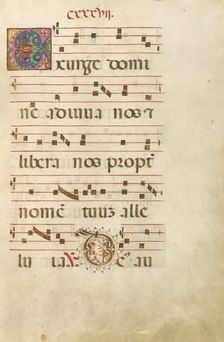 cxxxvii.
Exurge domi
ne adiuva nos ⁊
libera nos propt̄
nomē tuuȝ alle
luia ℣ Deau